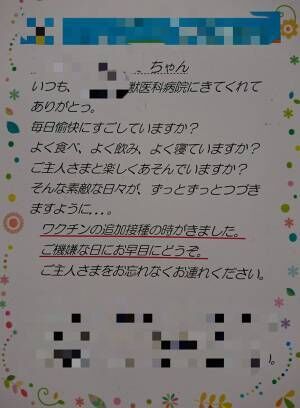 ちゃん
いつも、獣医科病院にきてくれて
ありがとっ。
毎日愉快にすごしていますか?
よく食べ、よく飲み、よく寝ていますか?
ご主人さまと楽しくあそんでいますか?
そんな素敵な日々が、ずっとずっとつづき
ますように...。
ワクチンの追加接種の時がきました。
ご機嫌な日にお早目にどうぞ。
ご主人さまをお忘れなくお連れください。